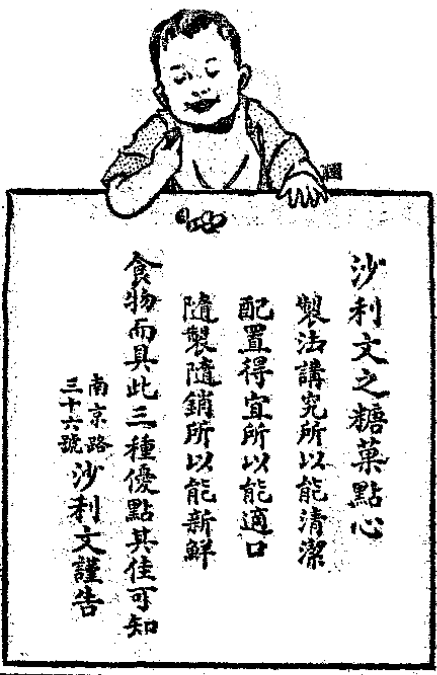 沙利文之糖菓點心
製法講究所以能清潔
配置得宜所以能適口
隨製隨銷所以能新鮮
食物而具此三種優點其佳可知
南京路
三十六號
沙利文謹告